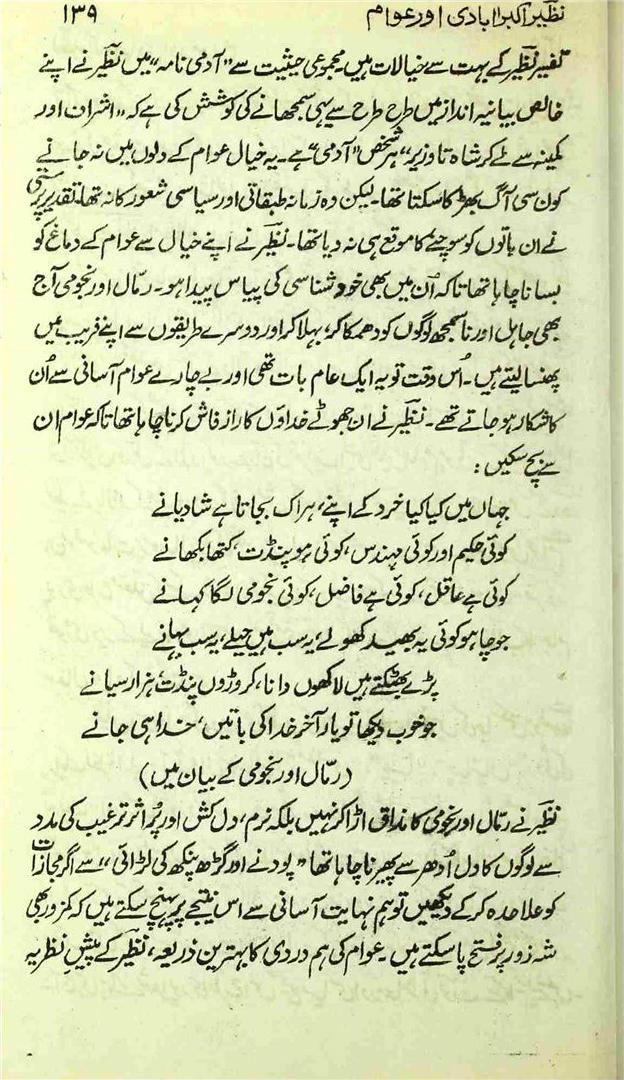 نظیر اکبرآبادی اور عوام ۱۳۹
کفیر نظیر کے بہت سے خیالات ہیں۔ مجموعی حیثیت سے "آدمی نامہ" میں نظیر نے اپنے
خالص بیانیہ انداز میں طرح طرح سے یہی سمجھانے کی کوشش کی ہے کہ "اشراف اور
کمینہ سے لے کر شاہ تا وزیر" ہر شخص "آدمی" ہے۔ یہ خیال عوام کے دلوں میں نہ جانے
کون سی آگ بھڑکا سکتا تھا۔ لیکن وہ زمانہ طبقاتی اور سیاسی شعور کا نہ تھا۔ تقدیر پرستی
نے ان باتوں کو سوچنے کا موقع ہی نہ دیا تھا۔ نظیر نے اپنے خیال سے عوام کے دماغ کو
بسانا چاہا تھا تاکہ اُن میں بھی خود شناسی کی پیاس پیدا ہو۔ رمّال اور نجومی آج
بھی جاہل اور ناسمجھ لوگوں کو دھمکا کر، بہلا کر اور دوسرے طریقوں سے اپنے فریب میں
پھنسا لیتے ہیں۔ اُس وقت تو یہ ایک عام بات تھی اور بے چارے عوام آسانی سے اُن
کا شکار ہو جاتے تھے۔ نظیر نے ان جھوٹے خداؤں کا راز فاش کرنا چاہا تھا تاکہ عوام ان
سے بچ سکیں:
جہاں میں کیا کیا خرد کے اپنے، ہر اک بجاتا ہے شادیانے
کوئی حکیم اور کوئی مہندس، کوئی ہو پنڈت، کتھا بکھانے
کوئی ہے عاقل، کوئی ہے فاضل، کوئی نجومی لگا کہانے
جو چاہو کوئی یہ بھید کھولے، یہ سب ہیں حیلے، یہ سب بہانے
پڑے بھٹکتے ہیں لاکھوں دانا، کروڑوں پنڈت، ہزار سیانے
جو خوب دیکھا تو یار آخر خدا کی باتیں، خدا ہی جانے
(رمّال اور نجومی کے بیان میں)
نظیر نے رمّال اور نجومی کا مذاق اڑا کر نہیں بلکہ نرم، دل کش اور پُر اثر ترغیب کی مدد
سے لوگوں کا دل اُدھر سے پھیرنا چاہا تھا "پودنے اور گڑھ پنکھ کی لڑائی" سے اگر مجازات
کو علاحدہ کر کے دیکھیں تو ہم نہایت آسانی سے اس نتیجے پر پہنچ سکتے ہیں کہ کمزور بھی
شہ زور پر فتح پا سکتے ہیں۔ عوام کی ہم دردی کا بہترین ذریعہ، نظیر کے پیشِ نظر یہ